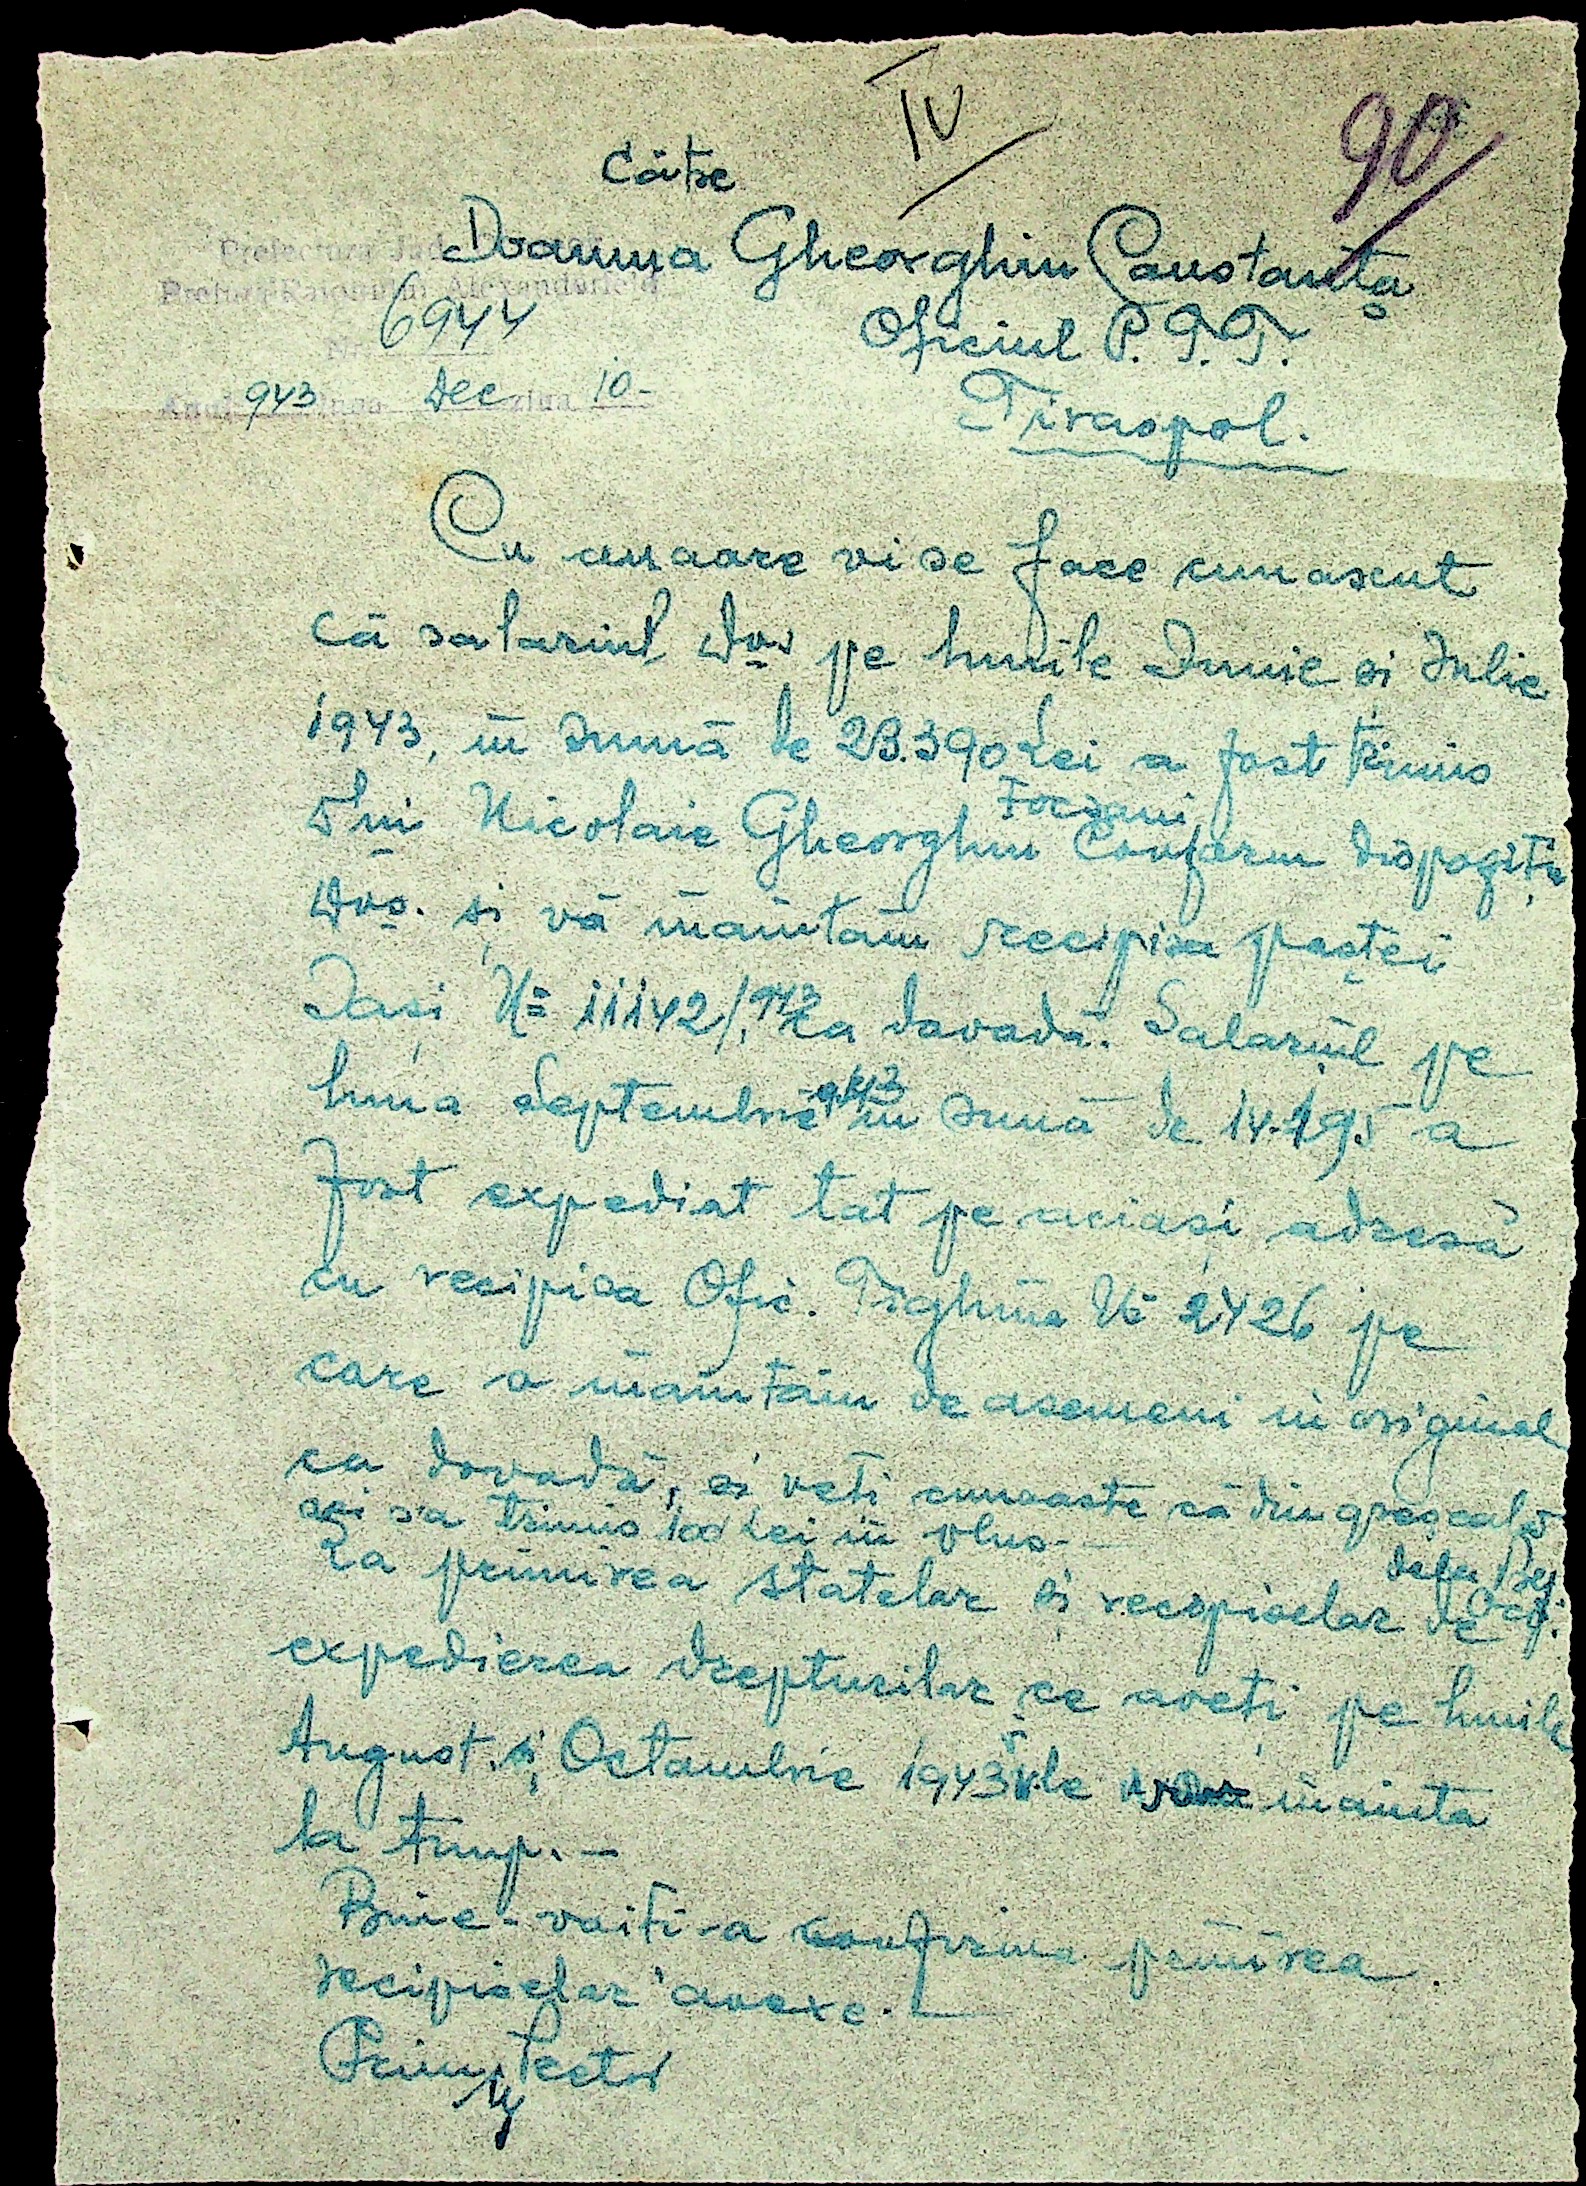 IV
90
Către
Doamna Gheorghiu Constanța
Prefectura Jud.
Pretura Raionului Alexanderfeld
6944
Oficiul P.T.T.
Nr.
Anul 943 luna Dec ziua 10-
Tiraspol.
Cu onoare vi se face cunoscut
că salariul Dvs pe lunile Iunie și Iulie
1943, în sumă de 28.390 Lei a fost trimis
Focșani
Dlui Nicolaie Gheorghiu Conform dispoziției
Dvs. și vă înaintăm recipisa poștei
Iași No 11142/943 ca dovadă. Salariul pe
luna Septembrie 943 în sumă de 14.195 a
fost expediat tot pe aciași adresă
cu recipisa Ofic. Tighina No 2426 pe
care o înaintăm deasemeni în original
ca dovadă, și veți cunoaște că din greșeală
aci sa trimis 100 Lei în plus.-
dela
La primirea statelor și recipiselor de
expedierea drepturilor ce aveți pe lunile
August. și Octombrie 1943 le înainta
la timp.-
Bine-voiți-a confirma primirea
recipiselor anexe.-
Prim Pretor